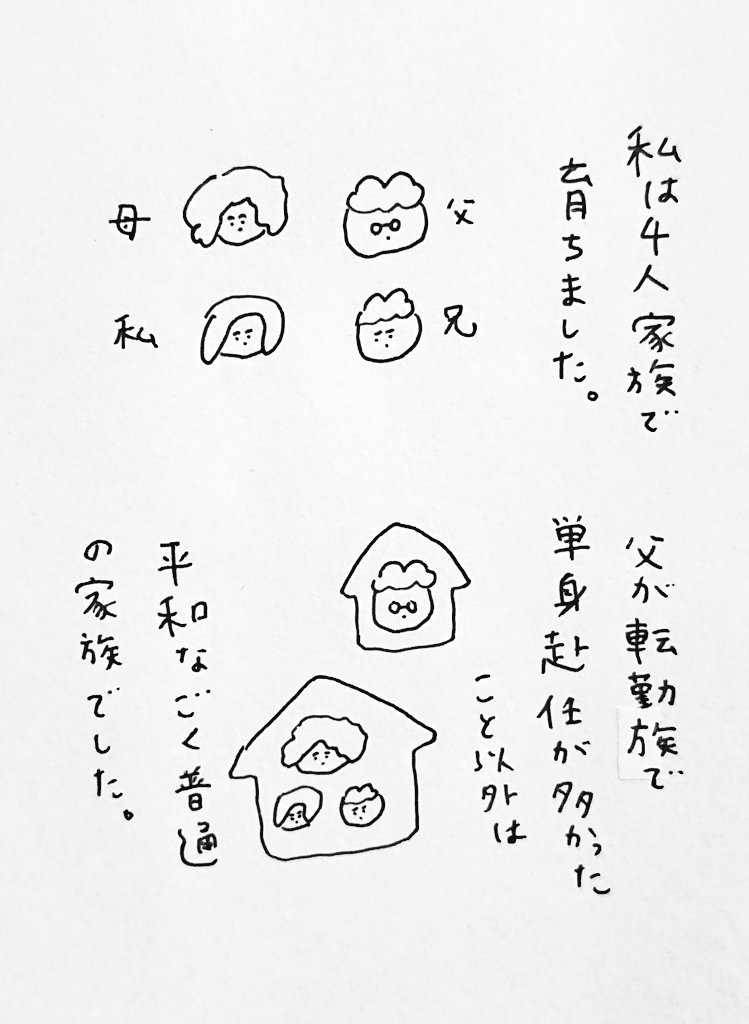 私は4人家族で
育ちました。
父
母
兄
私
父が転勤族で
単身赴任が多かった
こと以外は
平和なごく普通
の家族でした。